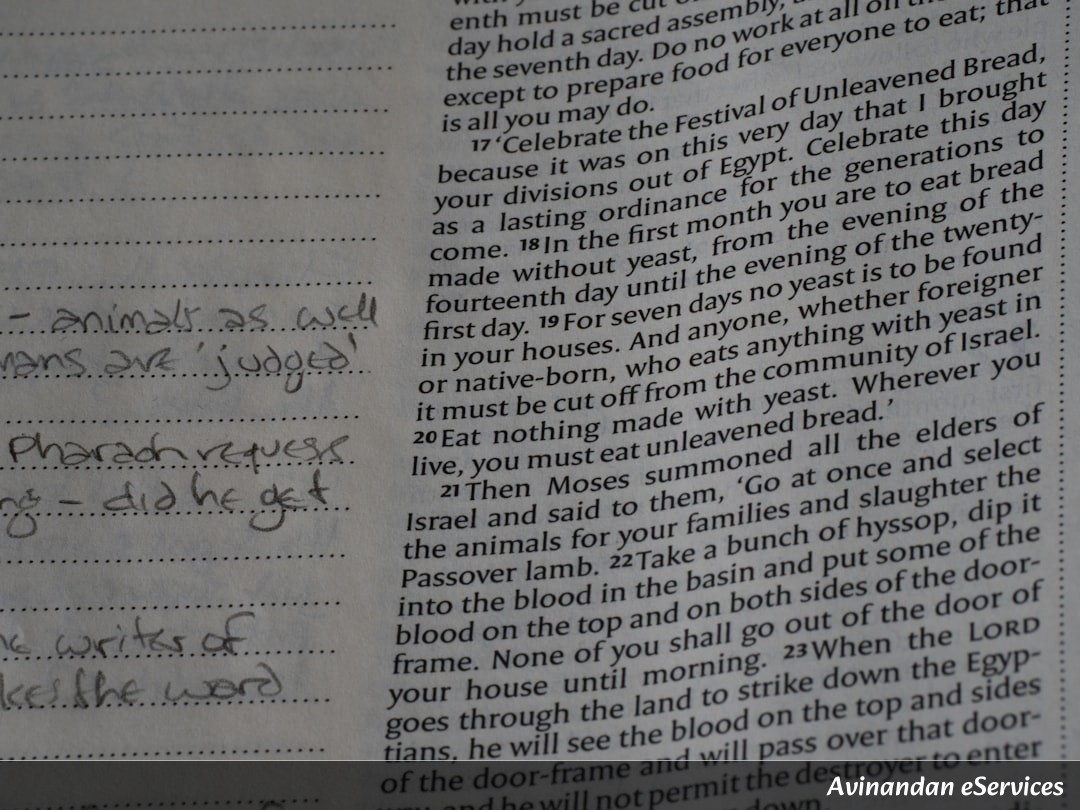 - animals as well
are 'judged'
Pharaoh
- did he get
writer of
the word
enth must be cut
day hold a sacred assembly,
the seventh day. Do no work at all on the
except to prepare food for everyone to eat; that
is all you may do.
17 ‘Celebrate the Festival of Unleavened Bread,
because it was on this very day that I brought
your divisions out of Egypt. Celebrate this day
as a lasting ordinance for the generations to
come. 18 In the first month you are to eat bread
made without yeast, from the evening of the
fourteenth day until the evening of the twenty-
first day. 19 For seven days no yeast is to be found
in your houses. And anyone, whether foreigner
or native-born, who eats anything with yeast in
it must be cut off from the community of Israel.
20 Eat nothing made with yeast. Wherever you
live, you must eat unleavened bread.’
21 Then Moses summoned all the elders of
Israel and said to them, ‘Go at once and select
the animals for your families and slaughter the
Passover lamb. 22 Take a bunch of hyssop, dip it
into the blood in the basin and put some of the
blood on the top and on both sides of the door-
frame. None of you shall go out of the door of
your house until morning. 23 When the LORD
goes through the land to strike down the Egyp-
tians, he will see the blood on the top and sides
of the door-frame and will pass over that door-
and he will not permit the destroyer to enter
down.
Avinandan eServices